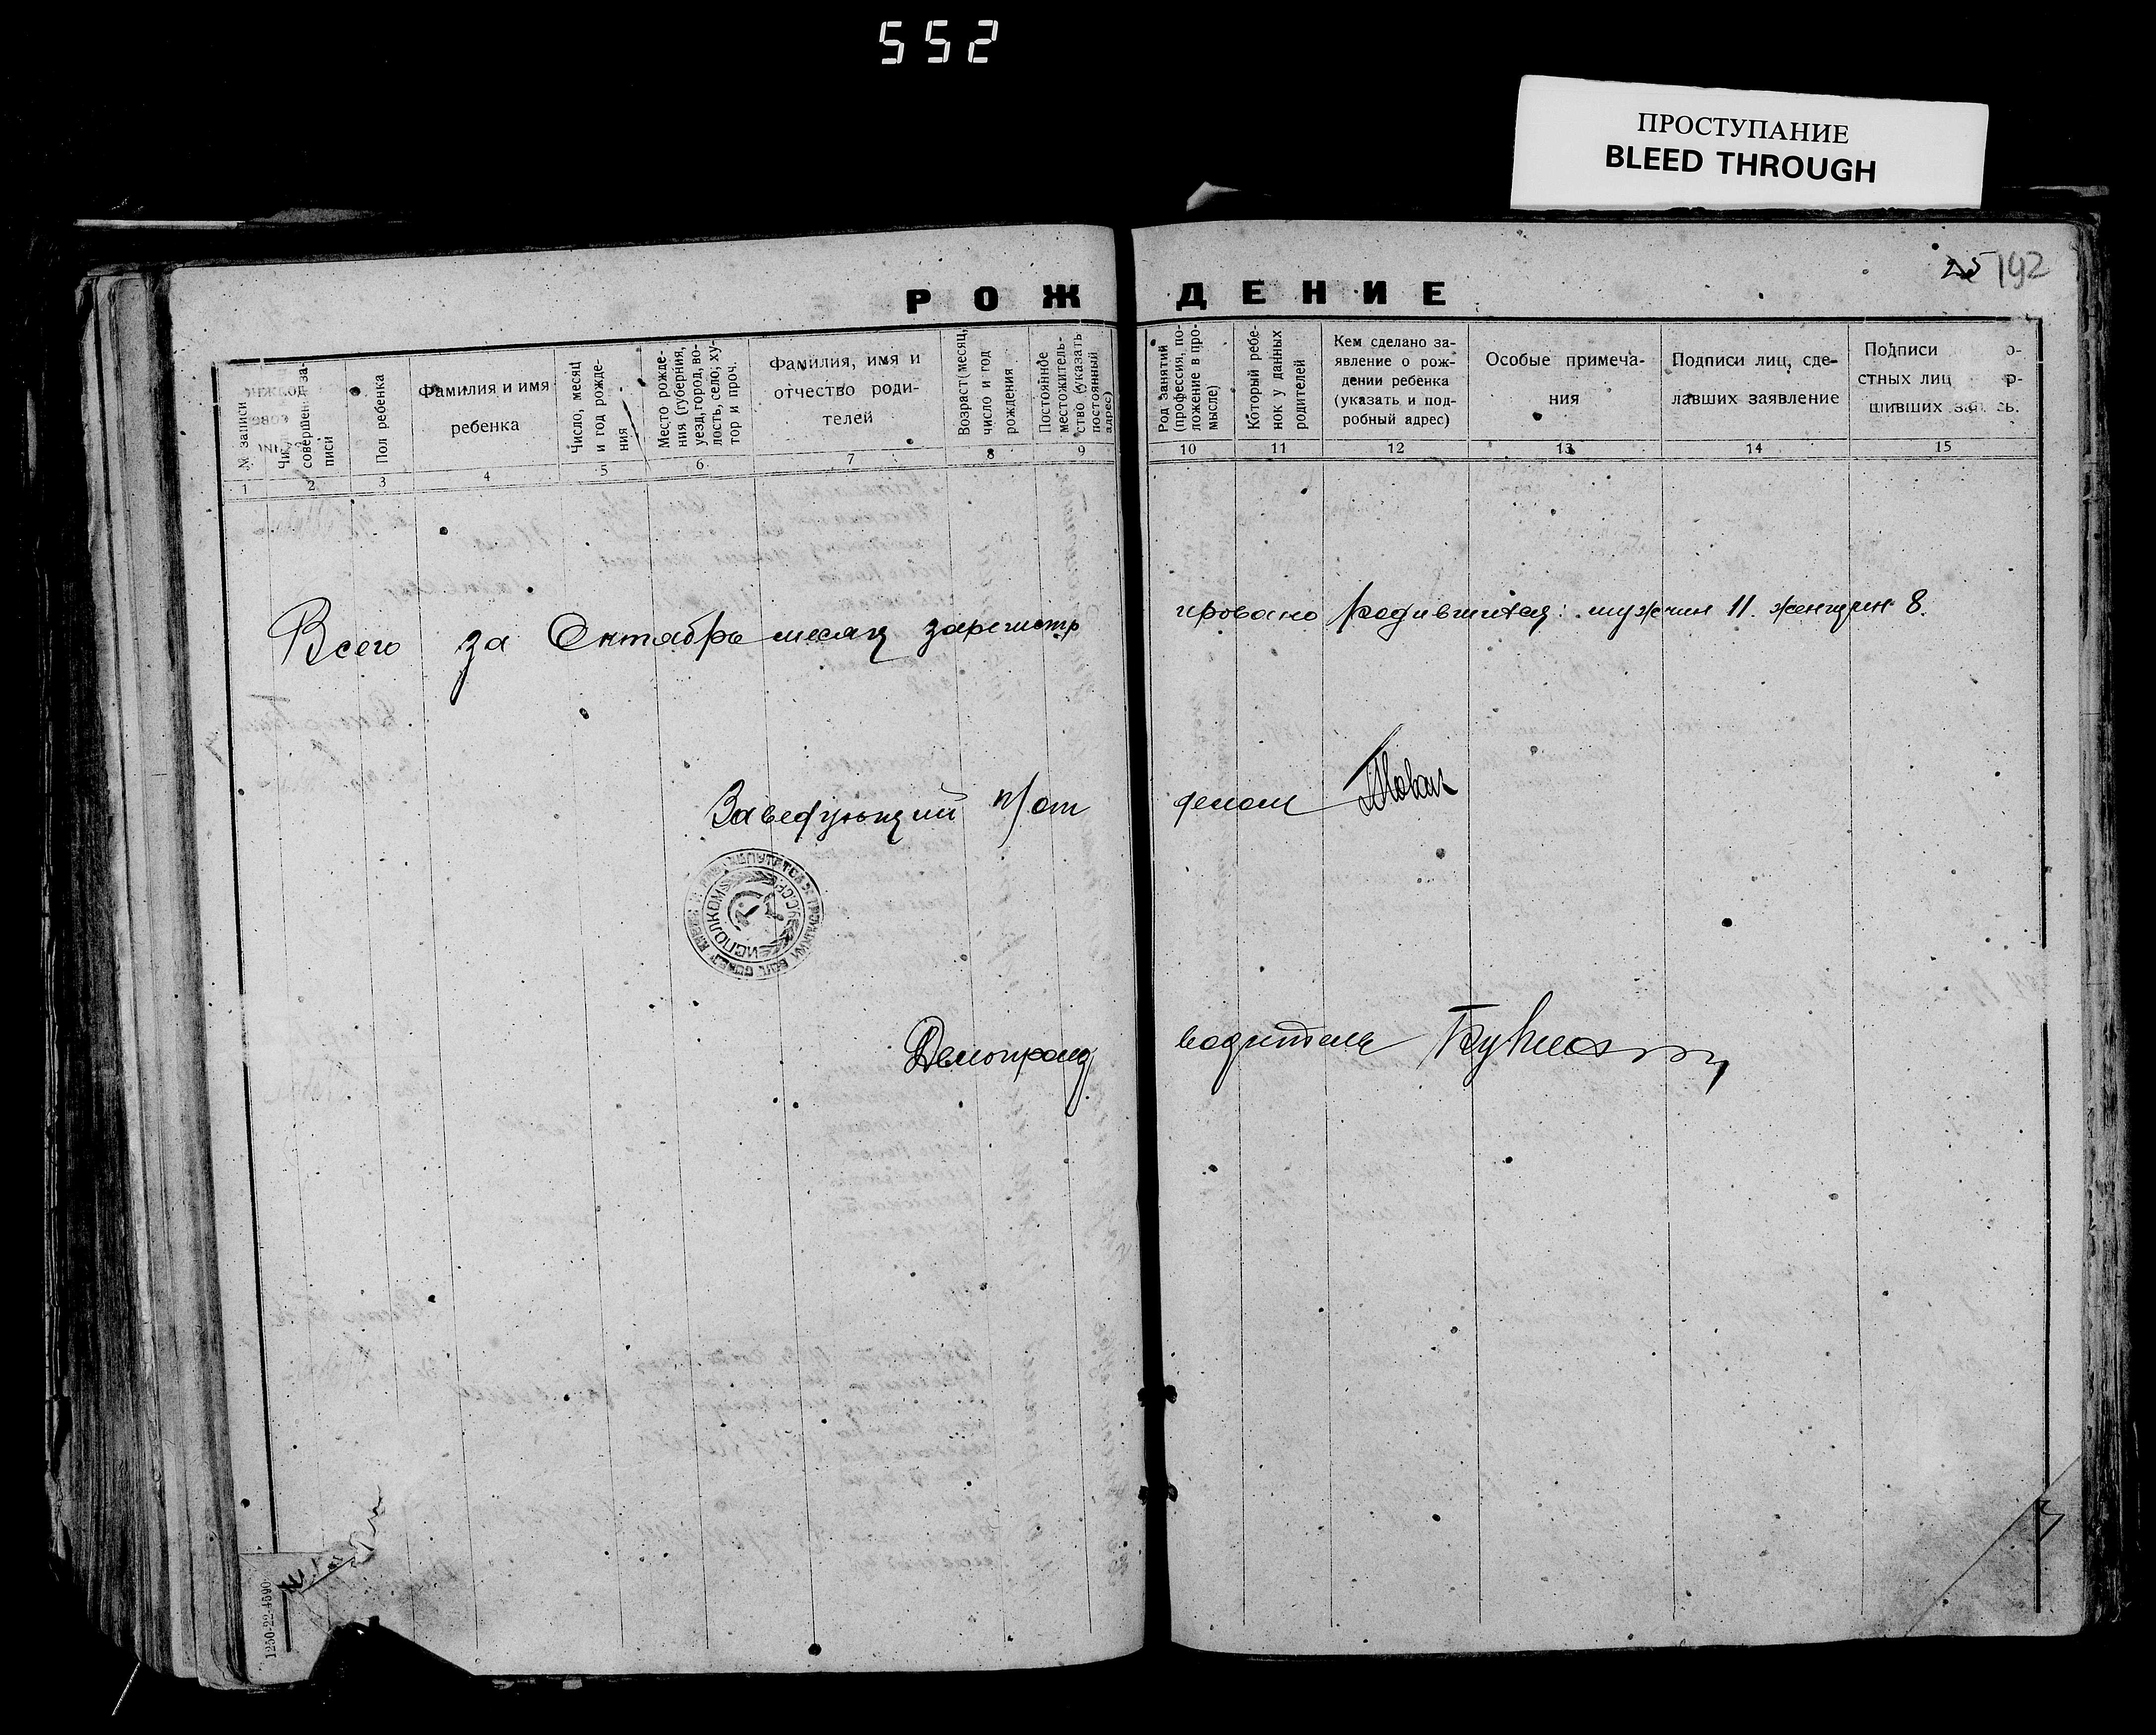 552
ПРОСТУПАНИЕ
BLEED THROUGH
25 192
РОЖДЕНИЕ
№ записи
совершения записи
Пол ребенка
Фамилия и имя ребенка
Число, месяц и год рождения
Место рождения (губерния, уезд, город, волость, село, хутор и проч.
Фамилия, имя и отчество родителей
Возраст (месяц, число и год рождения
Постоянное местожительство (указать постоянный адрес)
Род занятий (профессия, положение в промысле)
Который ребенок у данных родителей
Кем сделано заявление о рождении ребенка (указать и подробный адрес)
Особые примечания
Подписи лиц, сделавших заявление
Подписи о-стных лиц р-шивших
1 2 3 4 5 6 7 8 9 10 11 12 13 14 15
Всего за Октябрь месяц зарегистрировано родившихся: мужчин 11. женщин 8.
Заведующий п/отделом
ИСПОЛКОМ
Делопроизводитель
1250-22-4590